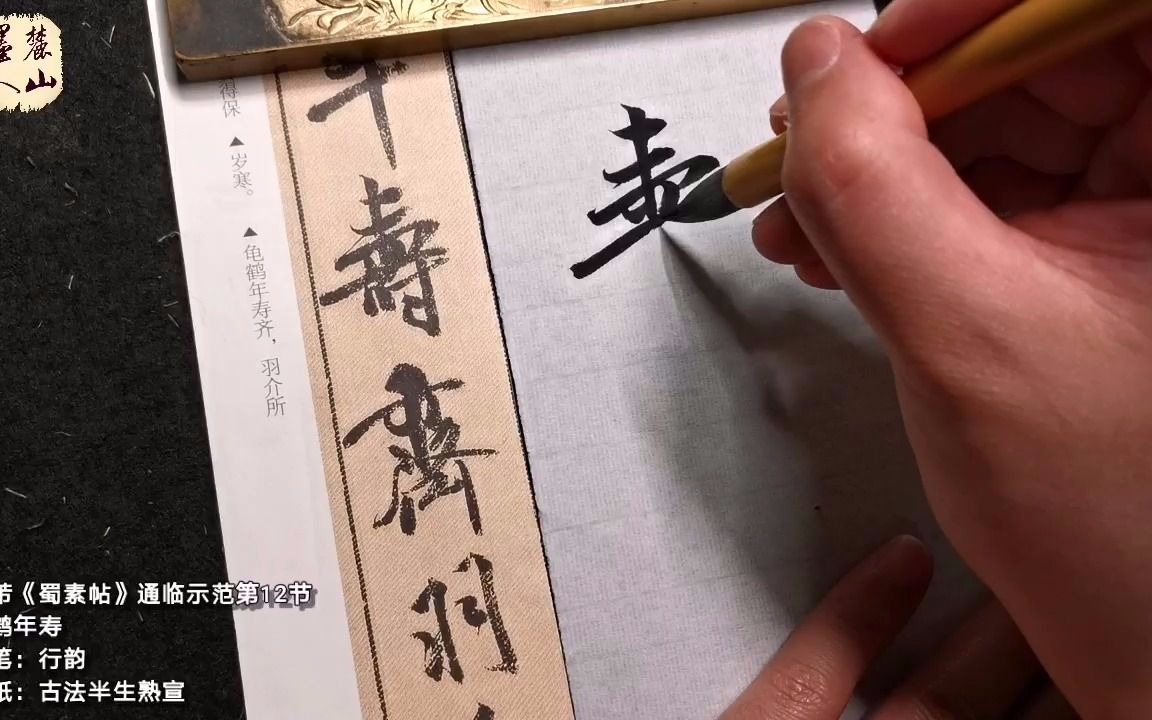 麓山
墨人
得保 ▲岁寒。 ▲龟鹤年寿齐，羽介所
年壽齊羽
帖《蜀素帖》通临示范第12节
鹤年寿
笔：行韵
纸：古法半生熟宣